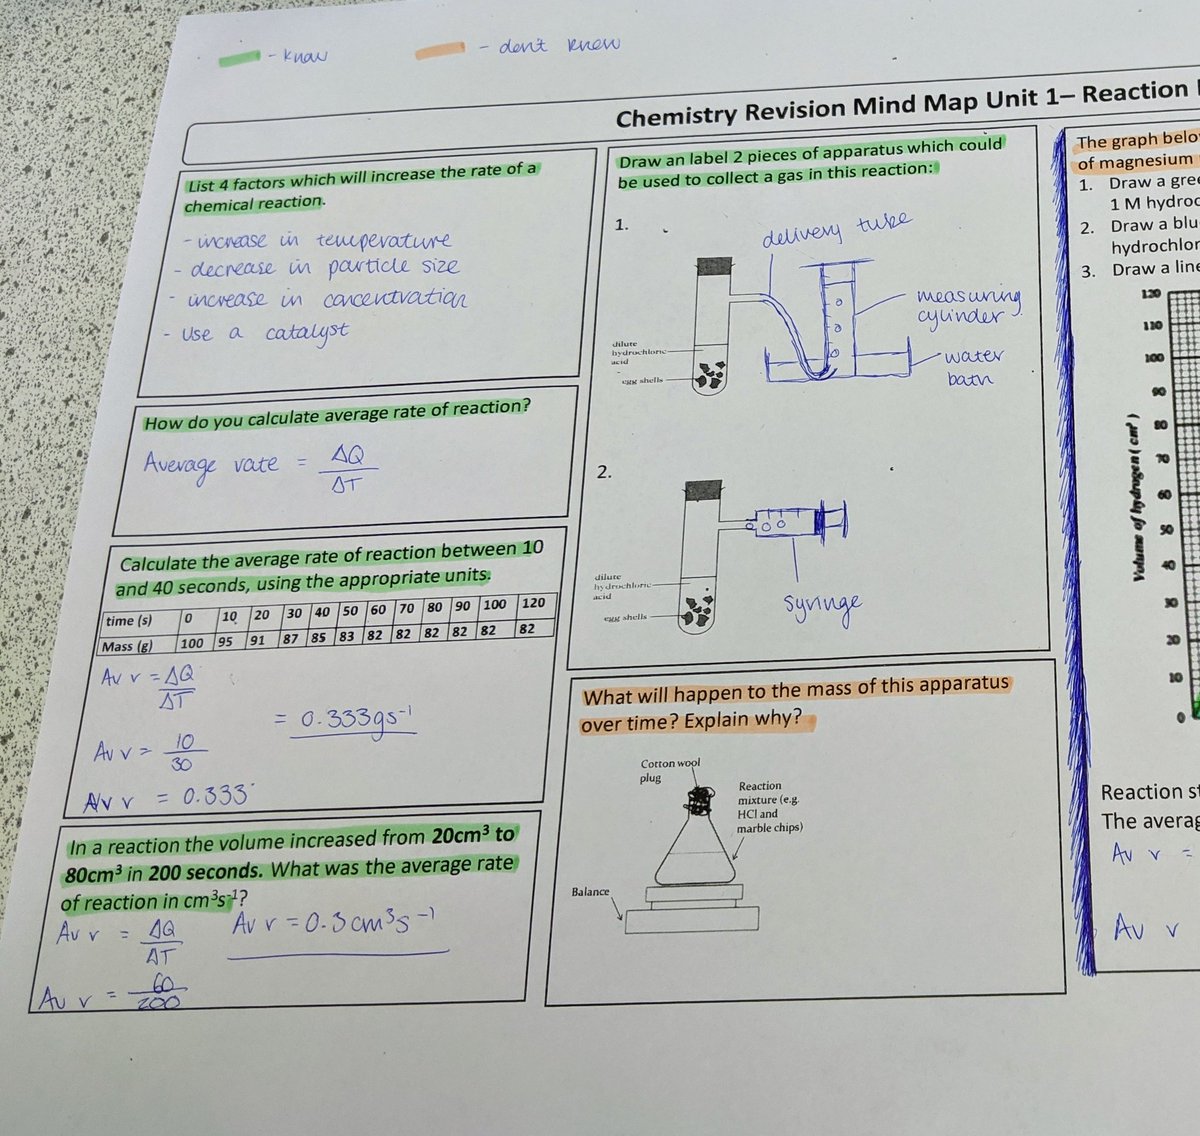 - know
- don't know
Chemistry Revision Mind Map Unit 1– Reaction
List 4 factors which will increase the rate of a
chemical reaction.
- increase in temperature
- decrease in particle size
- increase in concentration
- use a catalyst
How do you calculate average rate of reaction?
Average rate = ΔQ
ΔT
Calculate the average rate of reaction between 10
and 40 seconds, using the appropriate units.
time (s) 0 10 20 30 40 50 60 70 80 90 100 120
Mass (g) 100 95 91 87 85 83 82 82 82 82 82 82
Av r = ΔQ
ΔT
= 0.333gs⁻¹
Av r = 10
30
Av r = 0.333
In a reaction the volume increased from 20cm³ to
80cm³ in 200 seconds. What was the average rate
of reaction in cm³s⁻¹?
Av r = ΔQ
ΔT
Av r = 0.3cm³s⁻¹
Av r = 60
200
Draw an label 2 pieces of apparatus which could
be used to collect a gas in this reaction:
1.
delivery tube
measuring
cylinder
water
bath
dilute
hydrochloric
acid
egg shells
2.
dilute
hydrochloric
acid
egg shells
syringe
What will happen to the mass of this apparatus
over time? Explain why?
Cotton wool
plug
Reaction
mixture (e.g.
HCl and
marble chips)
Balance
The graph belo
of magnesium
1. Draw a gree
1 M hydroc
2. Draw a blu
hydrochlor
3. Draw a line
120
110
100
90
80
70
60
50
40
30
20
10
0
Volume of hydrogen (cm³)
Reaction st
The averag
Av r =
Av r